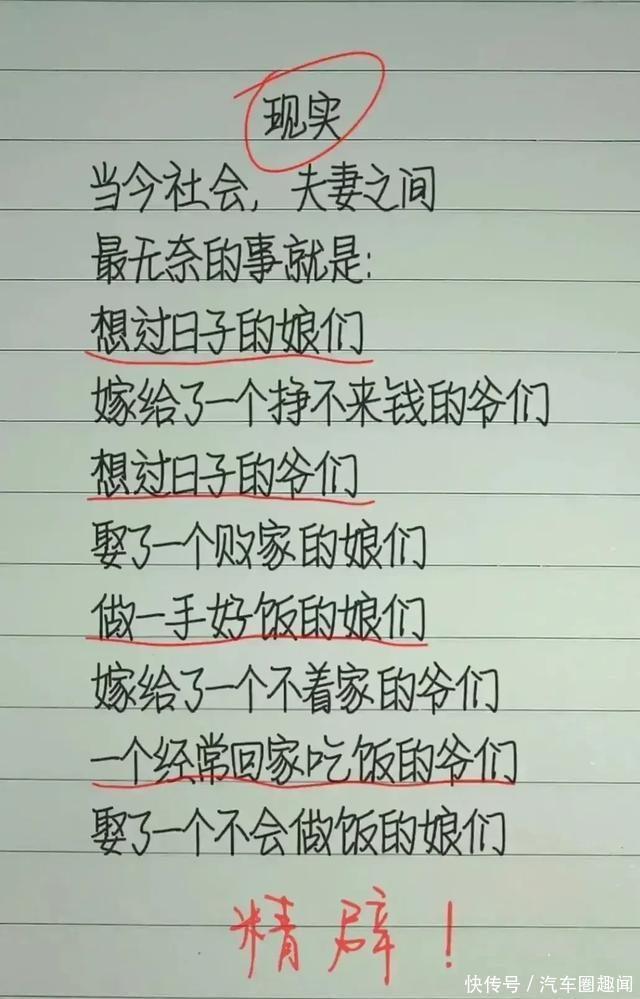 现实
当今社会，夫妻之间
最无奈的事就是：
想过日子的娘们
嫁给了一个挣不来钱的爷们
想过日子的爷们
娶了一个败家的娘们
做一手好饭的娘们
嫁给了一个不着家的爷们
一个经常回家吃饭的爷们
娶了一个不会做饭的娘们
精辟！
快传号／汽车圈趣闻